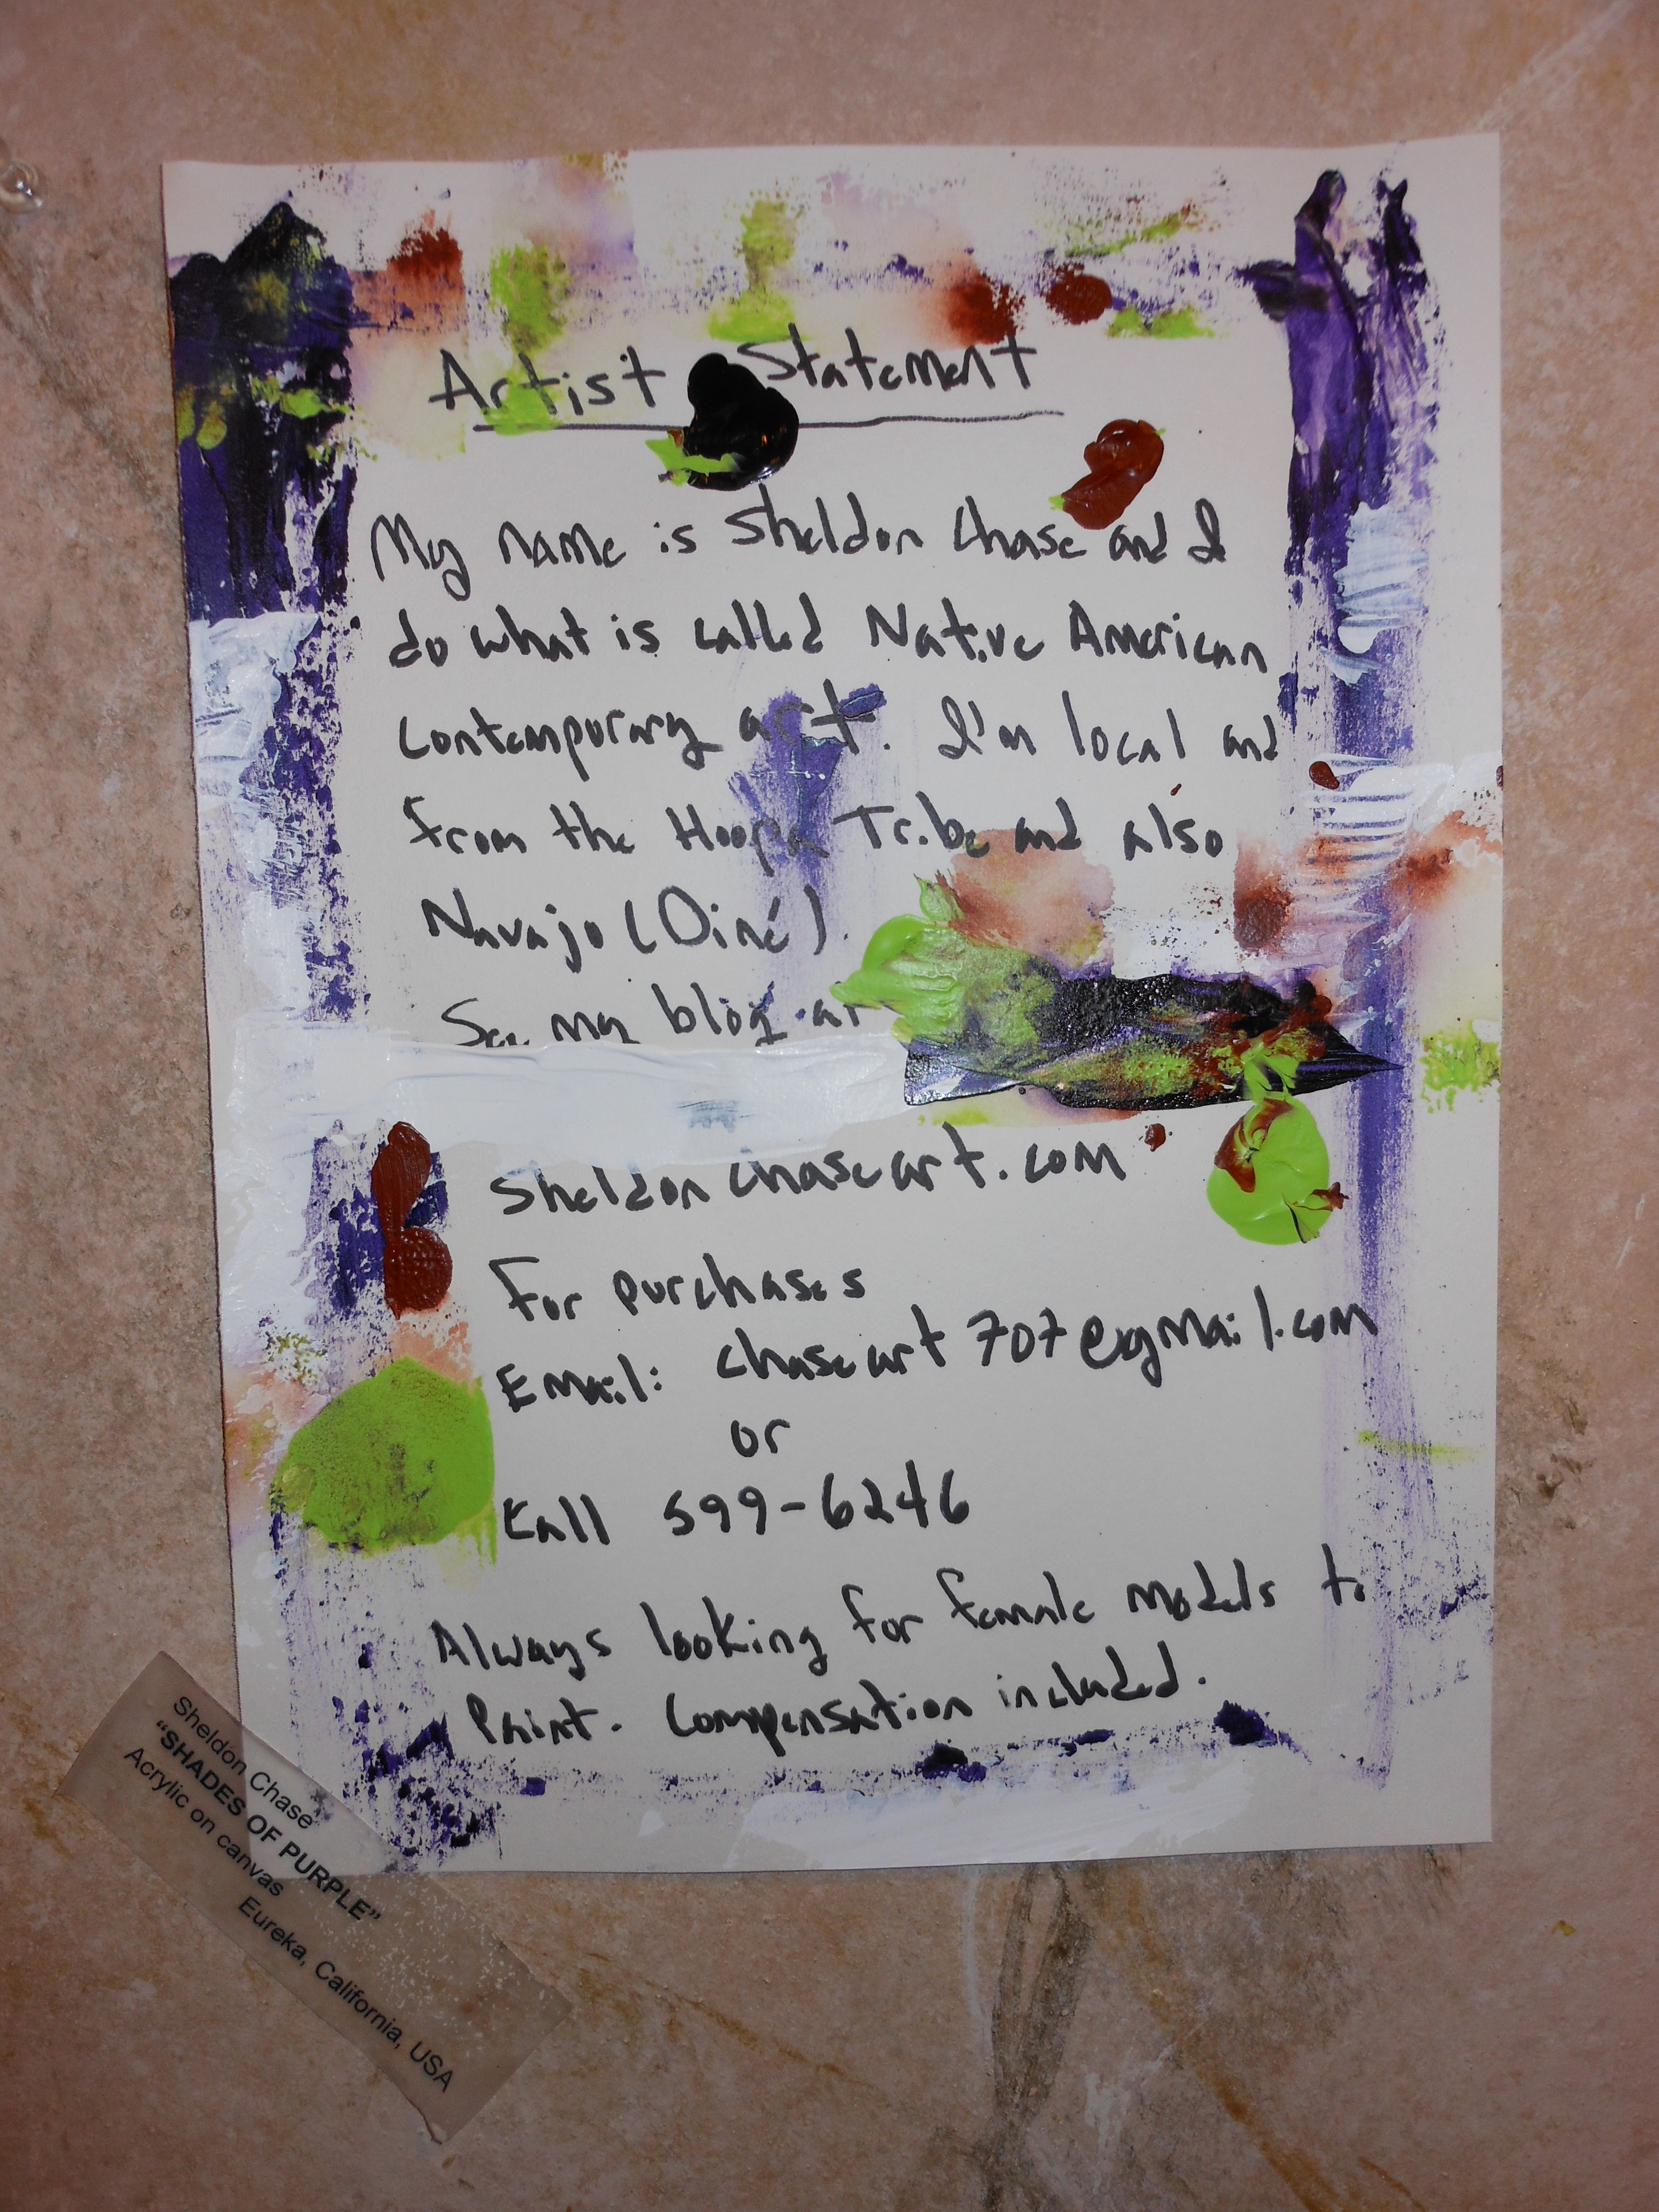 Artist Statement
My name is Sheldon Chase and I
do what is called Native American
Contemporary art. I'm local and
from the Hoopa Tribe and also
Navajo (Diné).
See my blog at
Sheldonchaseart.com
For purchases
Email: chaseart707@gmail.com
or
Call 599-6246
Always looking for female models to
Paint. Compensation included.
Sheldon Chase
"SHADES OF PURPLE"
Acrylic on canvas
Eureka, California, USA